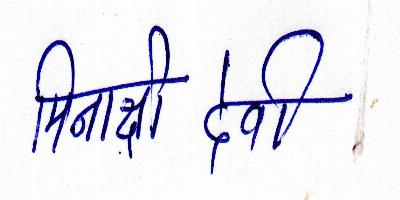 मिनाक्षी देवी